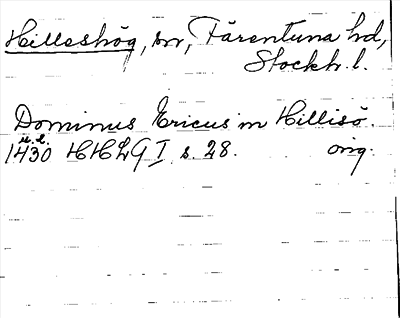 Hilleshög, sn, Färentuna hd,
Stockh. l.
Dominus Ericus in Hillisö.
u.d.
1430 HHLG I s. 28. orig.